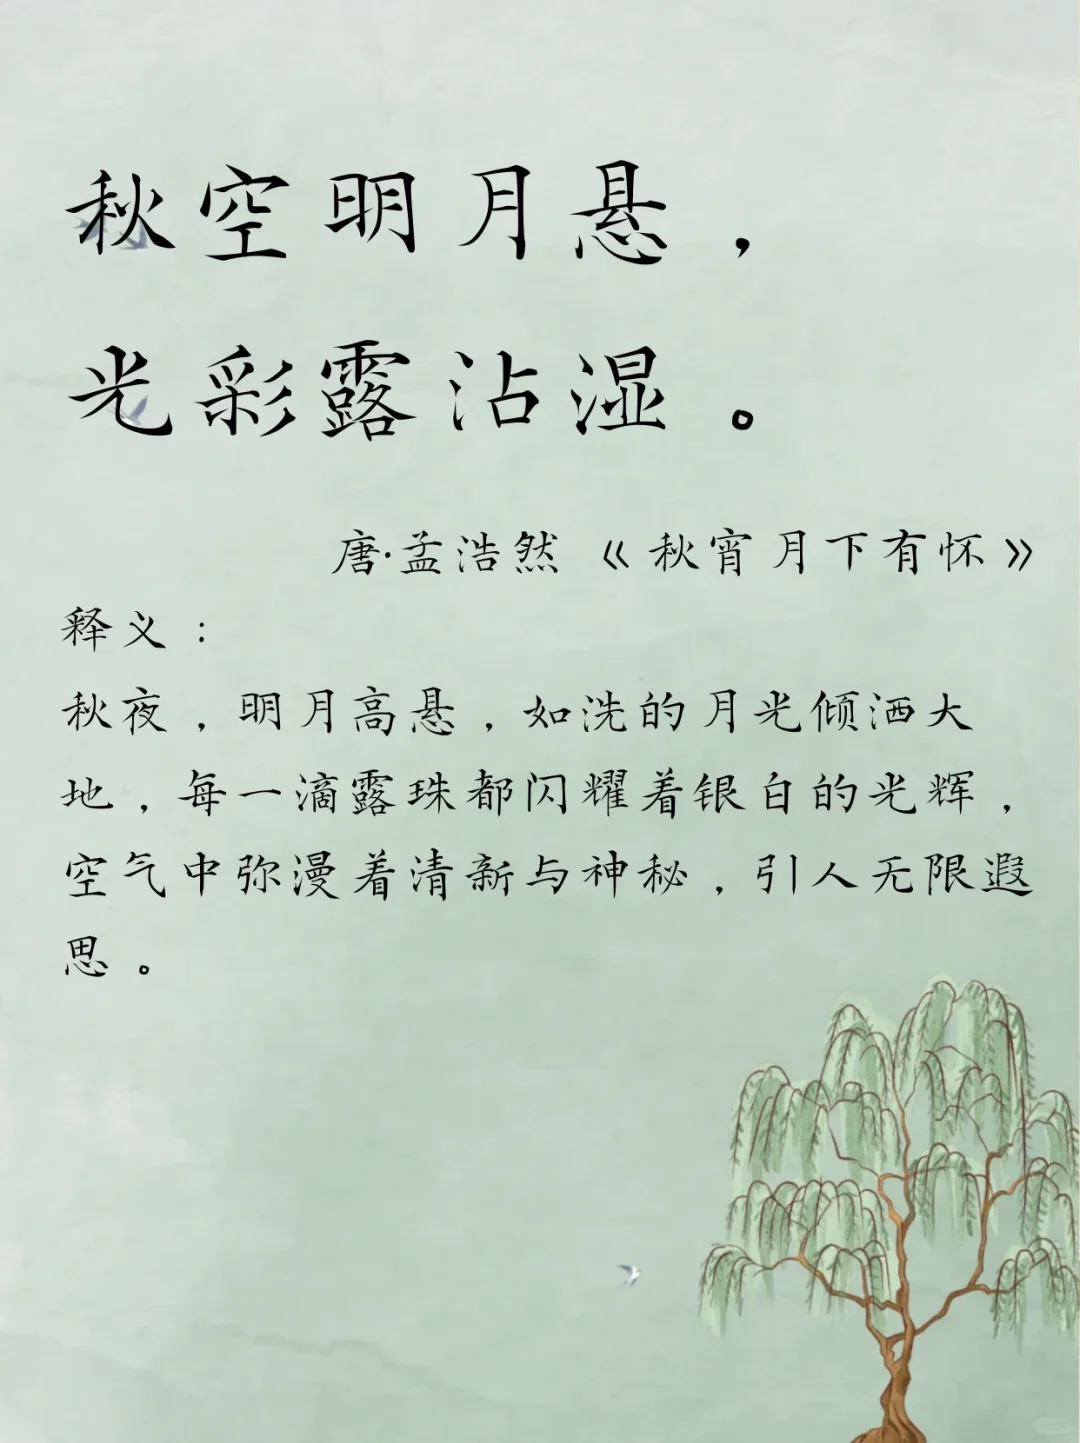 秋空明月悬，
光彩露沾湿。
唐·孟浩然《秋宵月下有怀》
释义：
秋夜，明月高悬，如洗的月光倾洒大
地，每一滴露珠都闪耀着银白的光辉，
空气中弥漫着清新与神秘，引人无限遐
思。